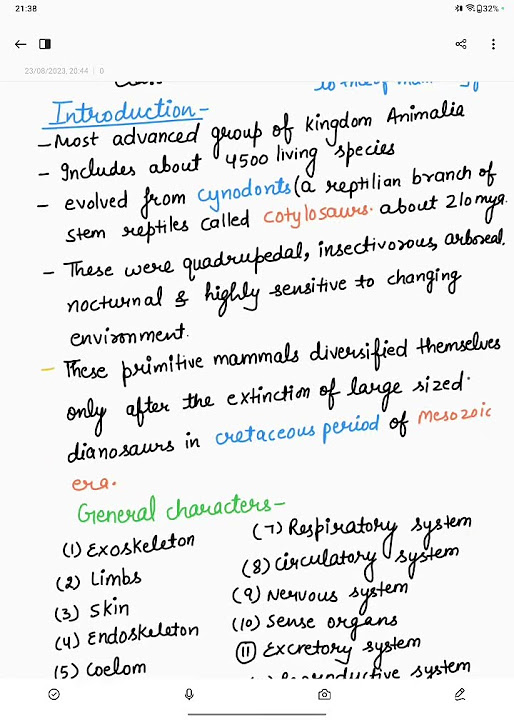 21:38
32%
23/08/2023, 20:44 | 0
Introduction-
- Most advanced group of kingdom Animalia
- Includes about 4500 living species
- evolved from cynodonts (a reptilian branch of
stem reptiles called cotylosaurs. about 210 mya.
- These were quadrupedal, insectivorous, arboreal,
nocturnal & highly sensitive to changing
environment.
- These primitive mammals diversified themselves
only after the extinction of large sized
dianosaurs in cretaceous period of Mesozoic
era.
General characters-
(1) Exoskeleton
(2) Limbs
(3) Skin
(4) Endoskeleton
(5) Coelom
(7) Respiratory system
(8) Circulatory system
(9) Nervous system
(10) Sense organs
(11) Excretory system
Reproductive system